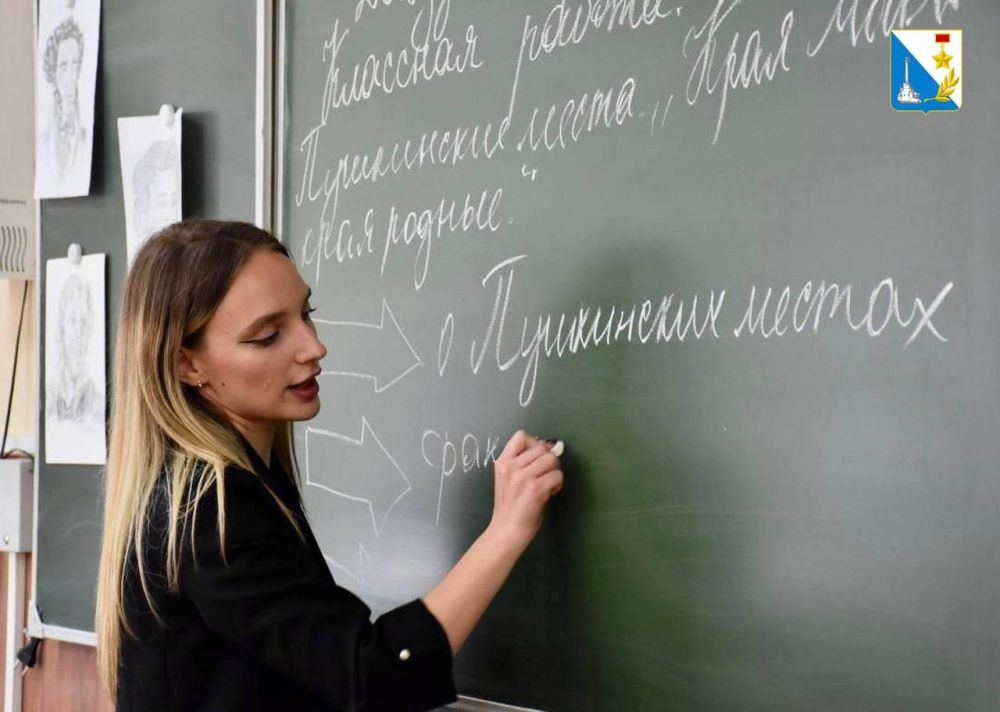 Классная работа.
Пушкинские места. „Края Мои
края родные."
о Пушкинских местах
фак